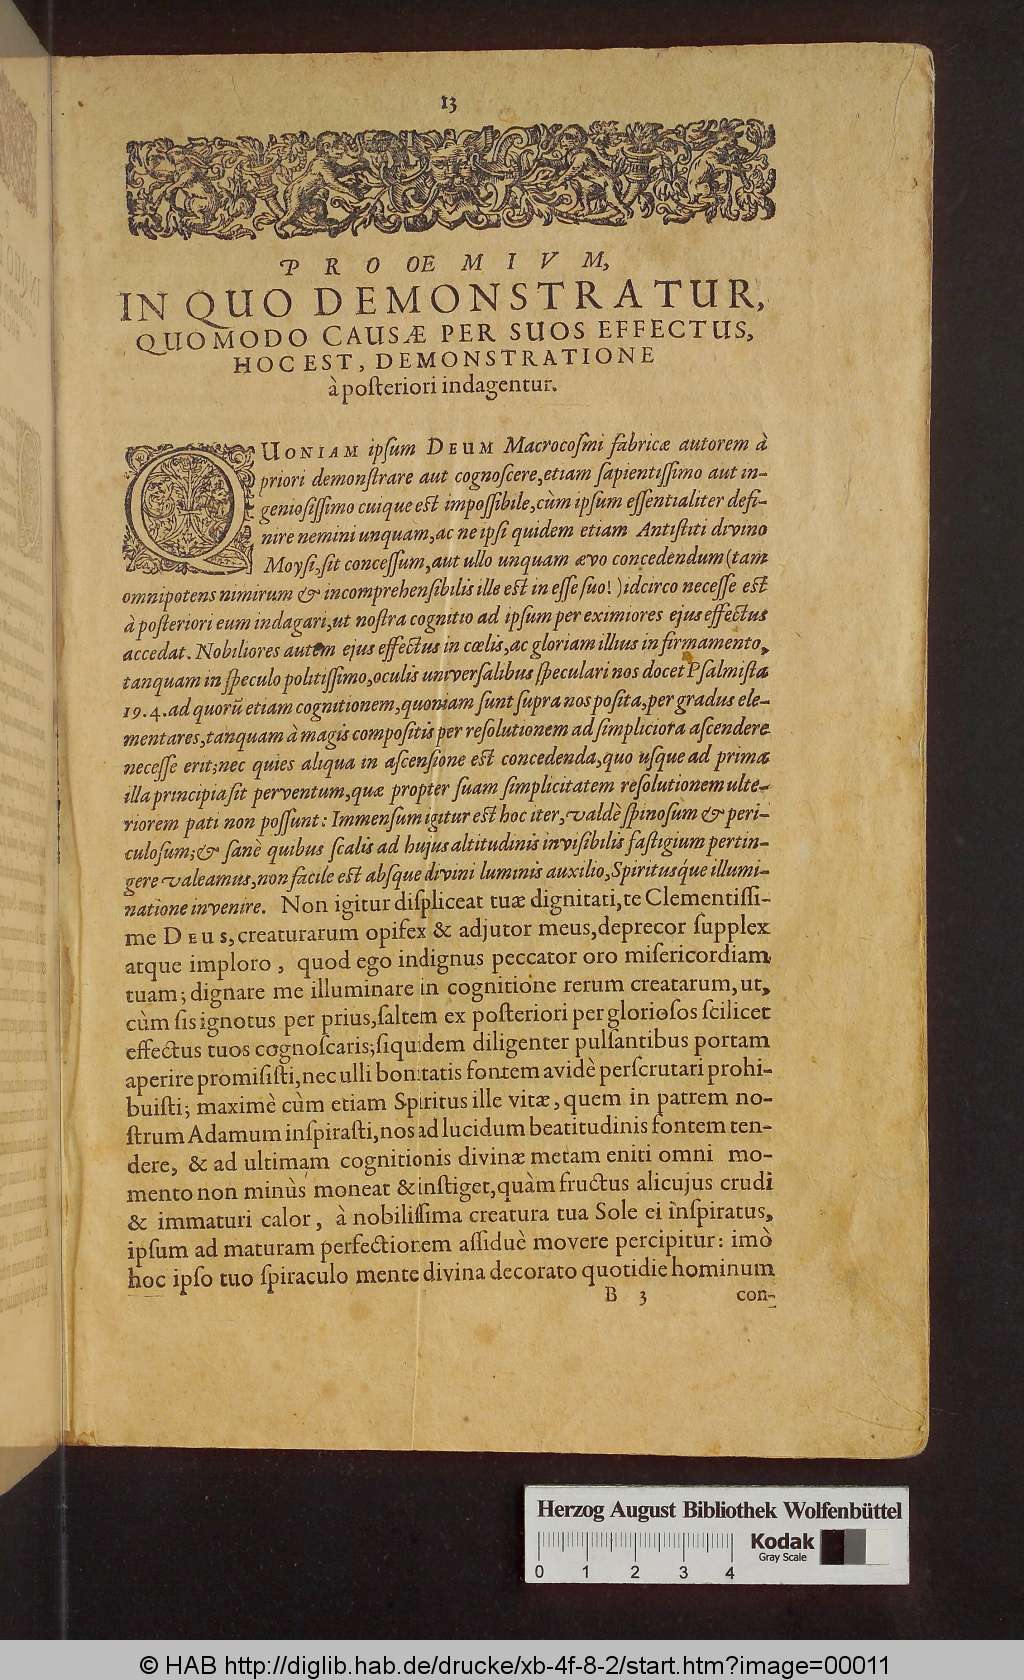 13
PROOEMIVM,
IN QUO DEMONSTRATUR,
QUOMODO CAUSÆ PER SUOS EFFECTUS,
HOC EST, DEMONSTRATIONE
à poſteriori indagentur.
QUONIAM ipſum DEUM Macrocoſmi fabricæ autorem à
priori demonſtrare aut cognoſcere, etiam ſapientiſſimo aut in-
genioſiſſimo cuique eſt impoſſibile, cùm ipſum eſſentialiter defi-
nire nemini unquam, ac ne ipſi quidem etiam Antiſtiti divino
Moyſi, ſit conceſſum, aut ullo unquam ævo concedendum (tam
omnipotens nimirum & incomprehenſibilis ille eſt in eſſe ſuo!) idcirco neceſſe eſt
à poſteriori eum indagari, ut noſtra cognitio ad ipſum per eximiores ejus effectus
accedat. Nobiliores autem ejus effectus in cœlis, ac gloriam illius in firmamento,
tanquam in ſpeculo politiſſimo, oculis univerſalibus ſpeculari nos docet Pſalmiſta
19.4. ad quorū etiam cognitionem, quoniam ſunt ſupra nos poſita, per gradus ele-
mentares, tanquam à magis compoſitis per reſolutionem ad ſimpliciora aſcendere
neceſſe erit; nec quies aliqua in aſcenſione eſt concedenda, quo uſque ad prima
illa principia ſit perventum, quæ propter ſuam ſimplicitatem reſolutionem ulte-
riorem pati non poſſunt: Immenſum igitur eſt hoc iter, valdè ſpinoſum & peri-
culoſum; & ſanè quibus ſcalis ad hujus altitudinis inviſibilis faſtigium pertin-
gere valeamus, non facile eſt absque divini luminis auxilio, Spiritusq́ue illumi-
natione invenire. Non igitur diſpliceat tuæ dignitati, te Clementiſſi-
me DEUS, creaturarum opifex & adjutor meus, deprecor ſupplex
atque imploro, quod ego indignus peccator oro miſericordiam
tuam; dignare me illuminare in cognitione rerum creatarum, ut,
cùm ſis ignotus per prius, ſaltem ex poſteriori per glorioſos ſcilicet
effectus tuos cognoſcaris; ſiquidem diligenter pulſantibus portam
aperire promiſiſti, nec ulli bonitatis fontem avidè perſcrutari prohi-
buiſti; maximè cùm etiam Spiritus ille vitæ, quem in patrem no-
ſtrum Adamum inſpiraſti, nos ad lucidum beatitudinis fontem ten-
dere, & ad ultimam cognitionis divinæ metam eniti omni mo-
mento non minùs moneat & inſtiget, quàm fructus alicujus crudi
& immaturi calor, à nobiliſſima creatura tua Sole ei inſpiratus,
ipſum ad maturam perfectionem aſſiduè movere percipitur: imò
hoc ipſo tuo ſpiraculo mente divina decorato quotidie hominum
B 3 con-
Herzog August Bibliothek Wolfenbüttel
Kodak
Gray Scale
0 1 2 3 4
© HAB http://diglib.hab.de/drucke/xb-4f-8-2/start.htm?image=00011